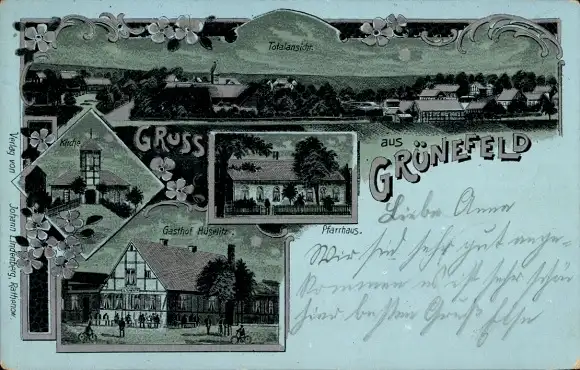 Totalansicht.
GRUSS aus GRÜNEFELD
Kirche.
Pfarrhaus.
Gasthof Huselitz.
Verlag von Johann Lindenberg, Rathenow.
Liebe Anna
Wir sid sehr gut ange-
kommen es ist sehr schön
hir besten Gruß Else